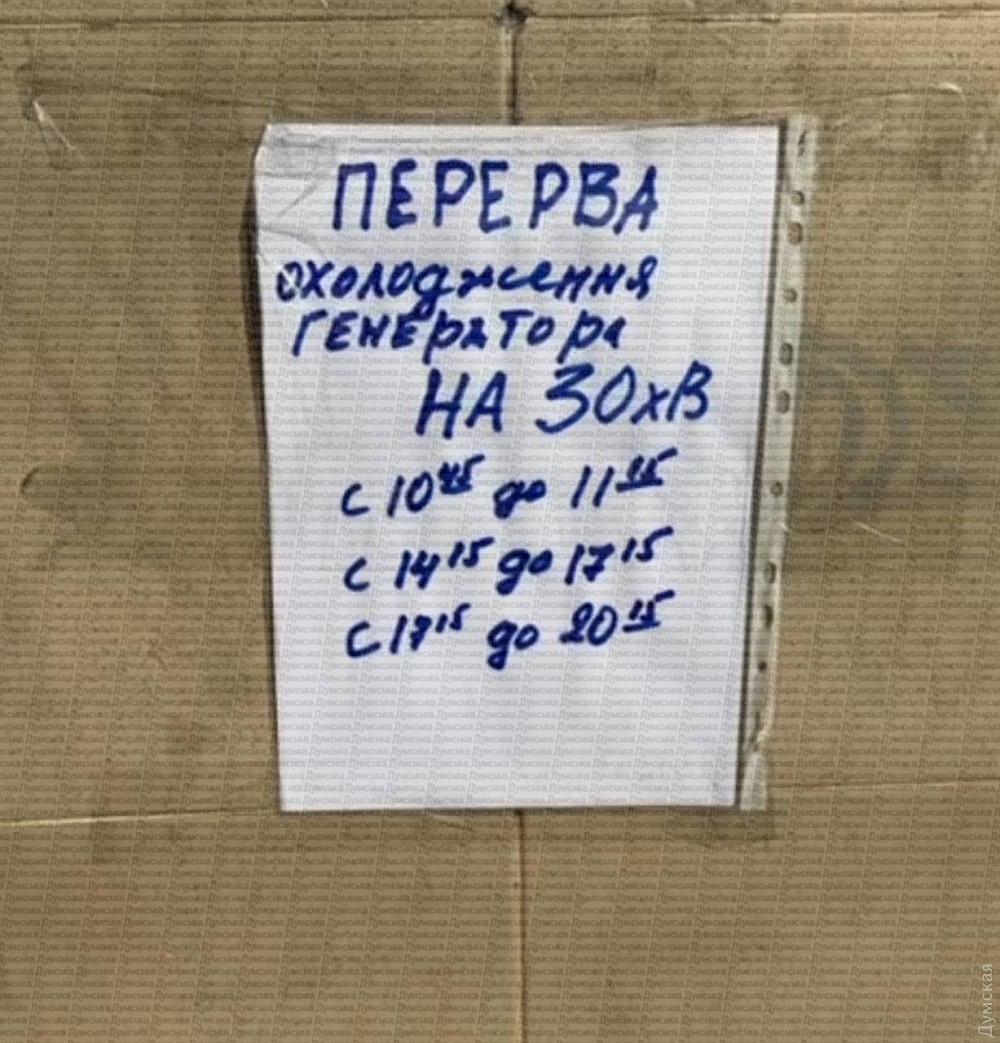 ПЕРЕРВА
охолодження
ГЕНЕРАТОРА
НА 30хВ
с 10⁴⁵ до 11¹⁵
с 14¹⁵ до 17¹⁵
с 17¹⁵ до 20¹⁵
Думская